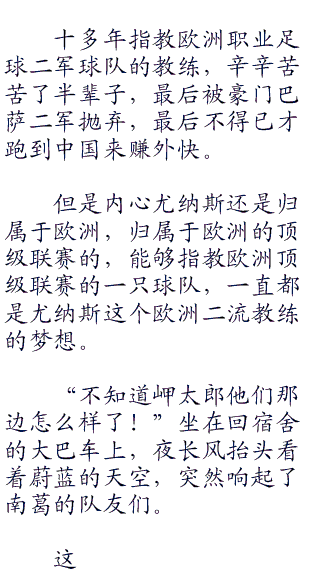 十多年指教欧洲职业足
球二军球队的教练，辛辛苦
苦了半辈子，最后被豪门巴
萨二军抛弃，最后不得已才
跑到中国来赚外快。
但是内心尤纳斯还是归
属于欧洲，归属于欧洲的顶
级联赛的，能够指教欧洲顶
级联赛的一只球队，一直都
是尤纳斯这个欧洲二流教练
的梦想。
“不知道岬太郎他们那
边怎么样了！”坐在回宿舍
的大巴车上，夜长风抬头看
着蔚蓝的天空，突然响起了
南葛的队友们。
这